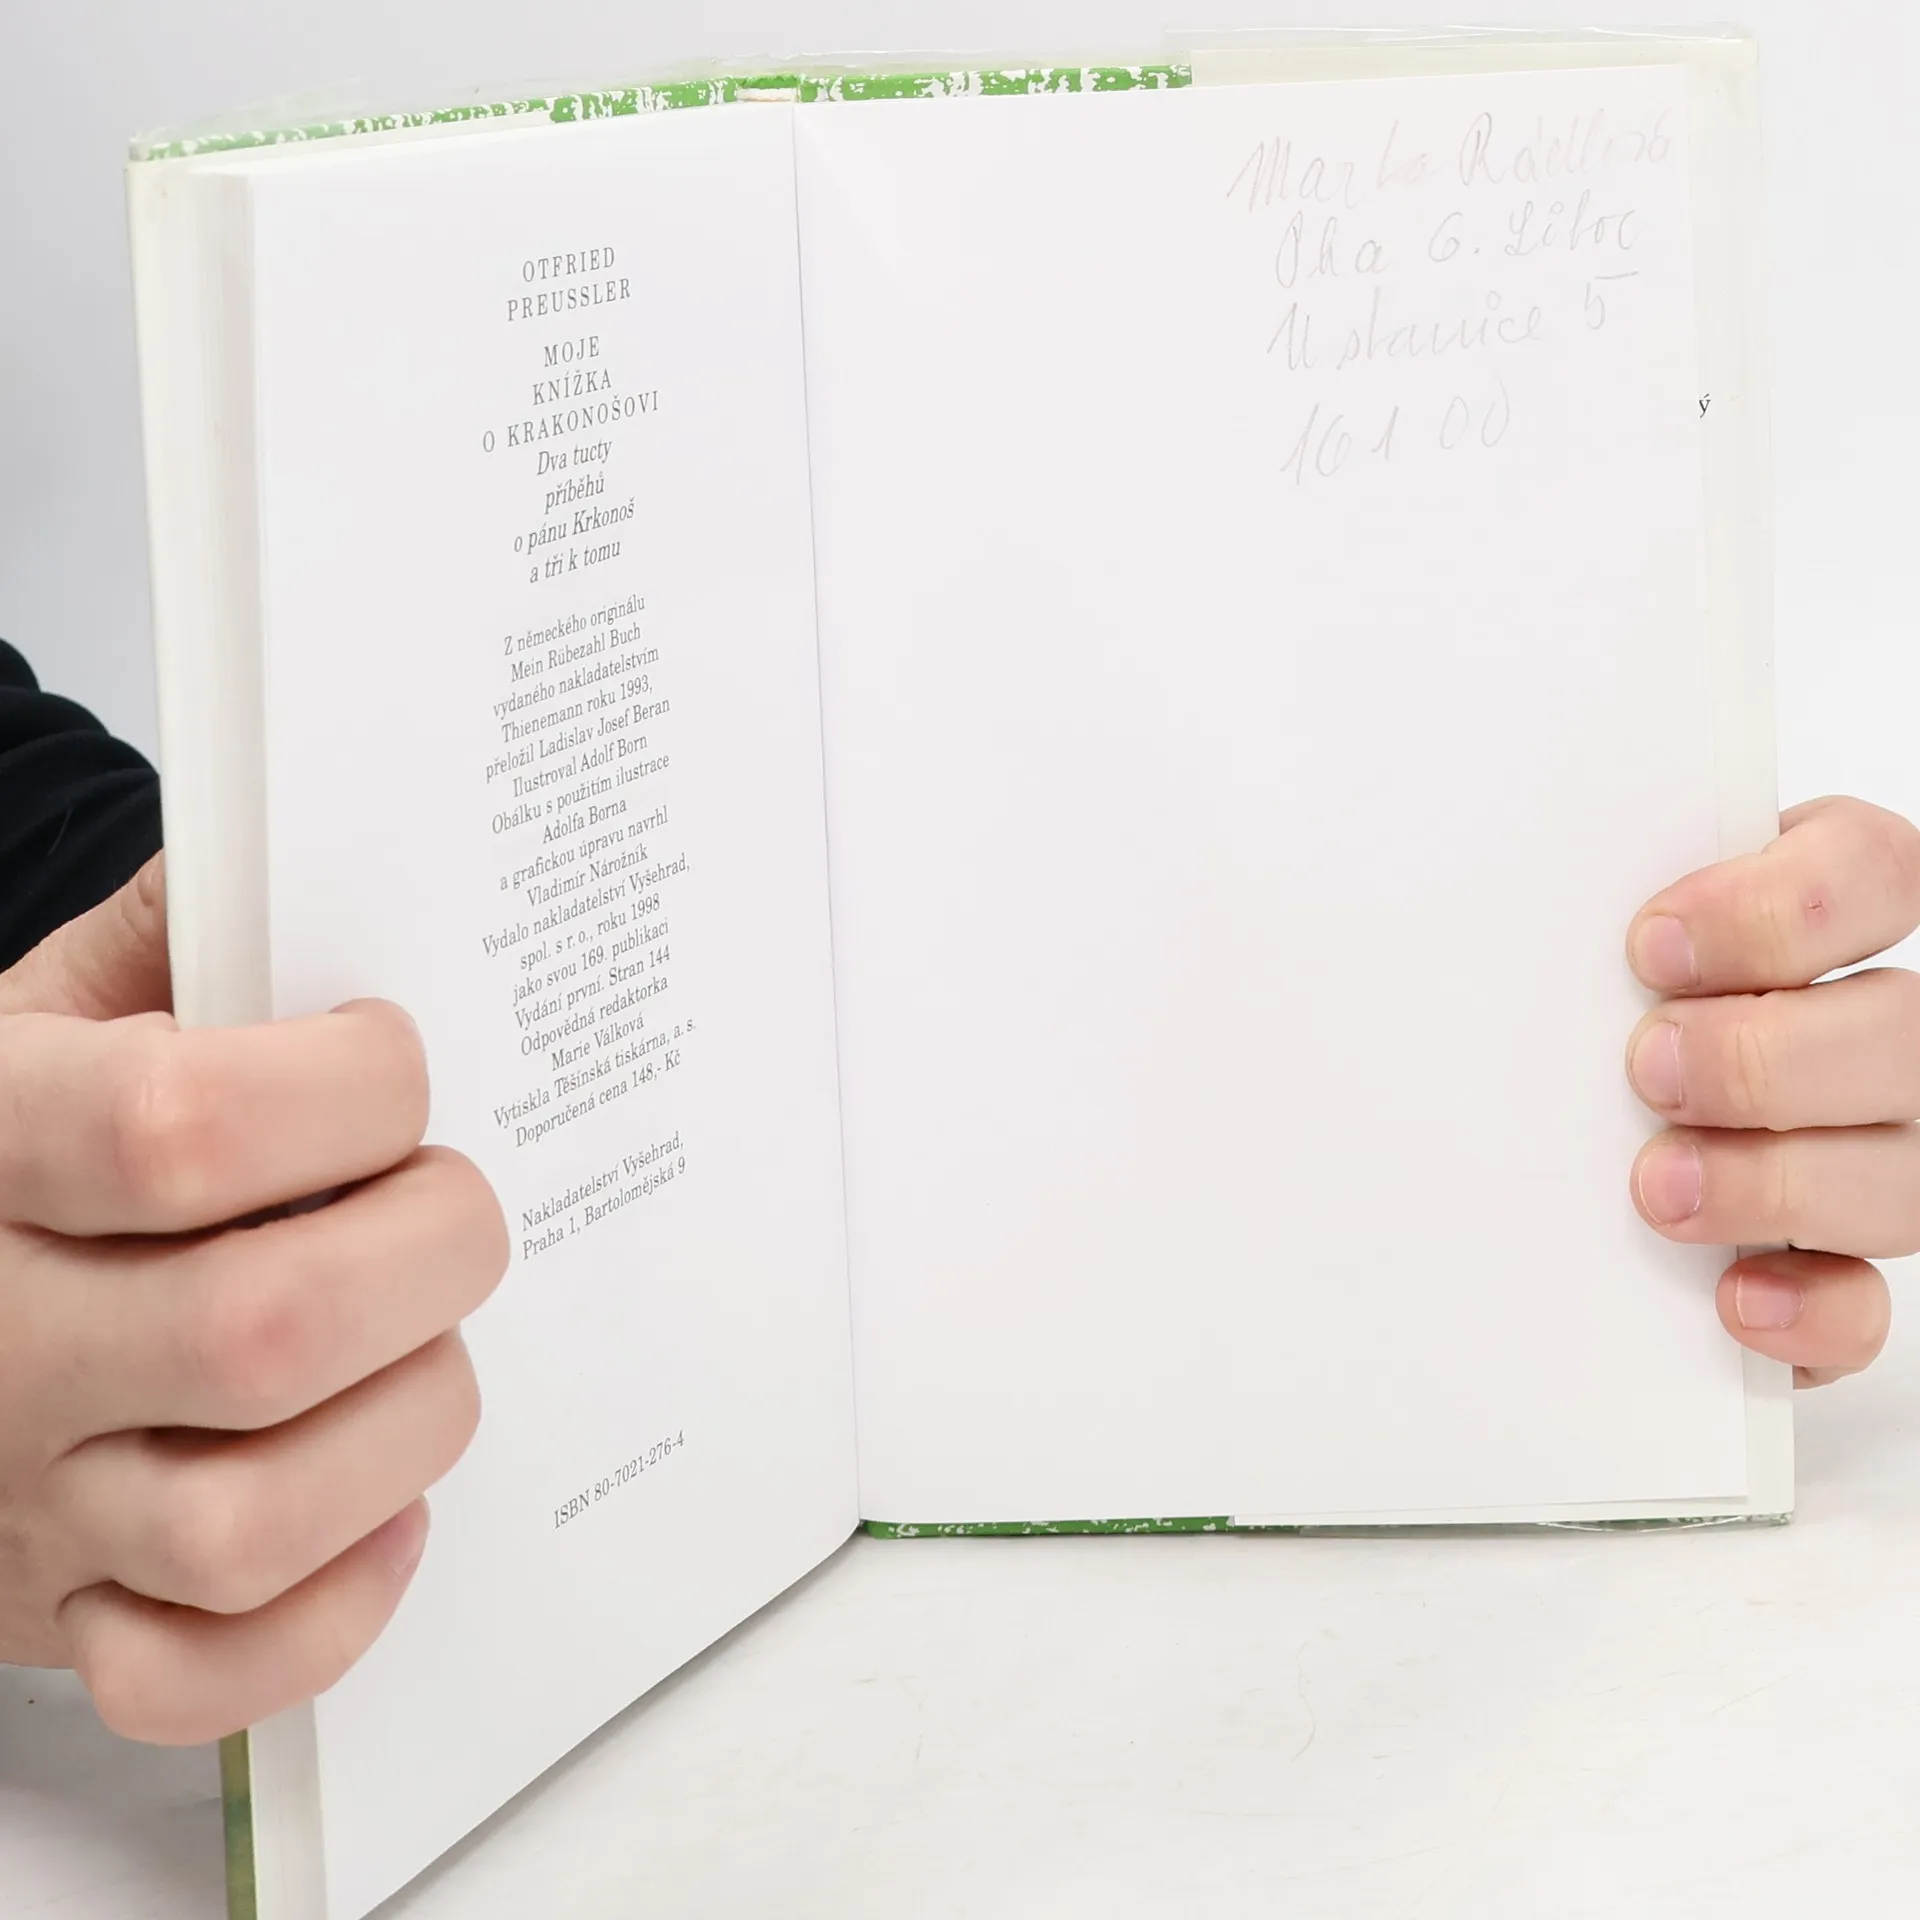 OTFRIED
PREUSSLER
MOJE
KNÍŽKA
O KRAKONOŠOVI
Dva tucty
příběhů
o pánu Krkonoš
a tři k tomu
Z německého originálu
Mein Rübezahl Buch
vydaného nakladatelstvím
Thienemann roku 1993,
přeložil Ladislav Josef Beran
Ilustroval Adolf Born
Obálku s použitím ilustrace
Adolfa Borna
a grafickou úpravu navrhl
Vladimír Nárožník
Vydalo nakladatelství Vyšehrad,
spol. s r. o., roku 1998
jako svou 169. publikaci
Vydání první. Stran 144
Odpovědná redaktorka
Marie Válková
Vytiskla Těšínská tiskárna, a. s.
Doporučená cena 148,- Kč
Nakladatelství Vyšehrad,
Praha 1, Bartolomějská 9
ISBN 80-7021-276-4
Pha 6. Liboc
U stanice 5
161 00
ý